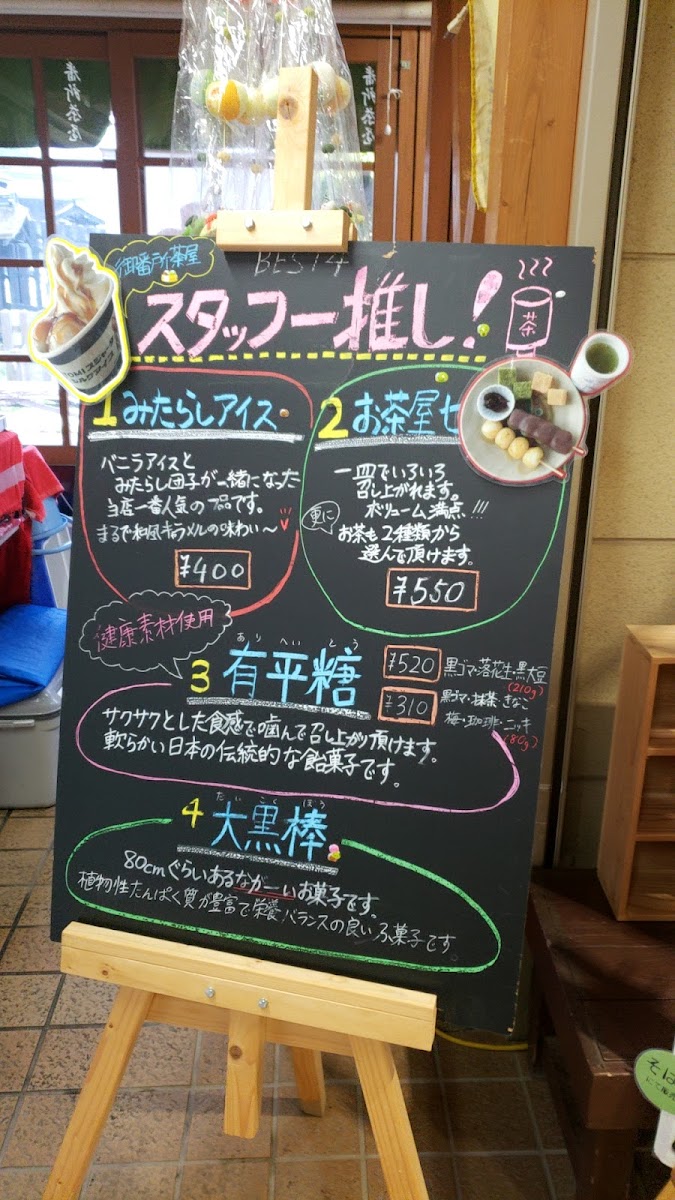 番所茶屋
御番所茶屋
BEST4
スタッフ一推し!
茶
1 みたらしアイス
バニラアイスと
みたらし団子が一緒になった
当店一番人気の一品です。
まるで和風キャラメルの味わい〜
¥400
2 お茶屋セ
一皿でいろいろ
召し上がれます。
ボリューム満点!!!
更に
お茶も2種類から
選んで頂けます。
¥550
健康素材使用
ありへいとう
3 有平糖
¥520 黒ゴマ・落花生・黒大豆
(210g)
¥310 黒ゴマ・抹茶・きなこ
梅・珈琲・ニッキ
(80g)
サクサクとした食感で噛んで召し上がり頂けます。
軟らかい日本の伝統的な飴菓子です。
だいこくぼう
4 大黒棒
80cmぐらいあるながーいお菓子です。
植物性たんぱく質が豊富で栄養バランスの良いふ菓子です。